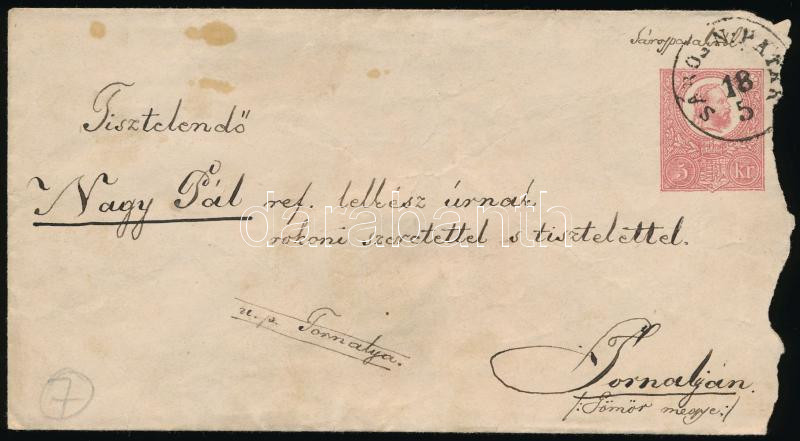 Sárospatakról
SÁROS N. PATAK
18
5
5 Kr
Tisztelendő
Nagy Pál ref. lelkész úrnak
rokoni szeretettel s tisztelettel.
darabanth
u. p. Tornalya.
Tornalján.
/: Gömör megye :/
7